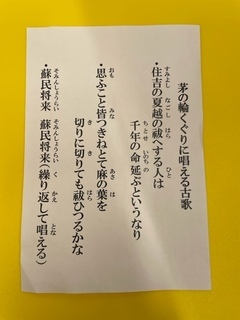 茅の輪くぐりに唱える古歌
・住吉の夏越の祓へする人は
千年の命延ぶというなり
・思ふこと皆つきねとて麻の葉を
切りに切りても祓ひつるかな
・蘇民将来　蘇民将来（繰り返して唱える）